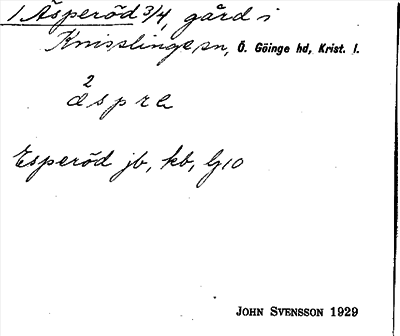 1 Äsperöd 3/4, gård i
Knisslinge sn, Ö. Göinge hd, Krist. l.
2
äsprɑ
Esperöd jb, kb, Gg10
JOHN SVENSSON 1929